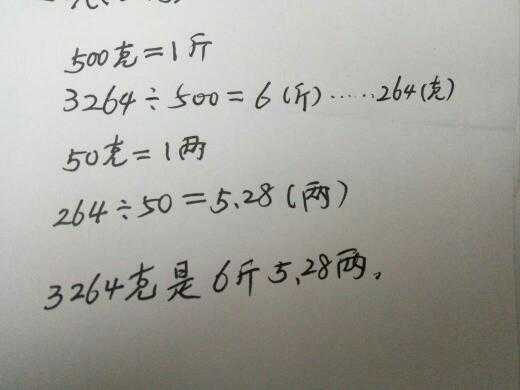 500克=1斤
3264÷500=6(斤)……264(克)
50克=1两
264÷50=5.28(两)
3264克是6斤5.28两。